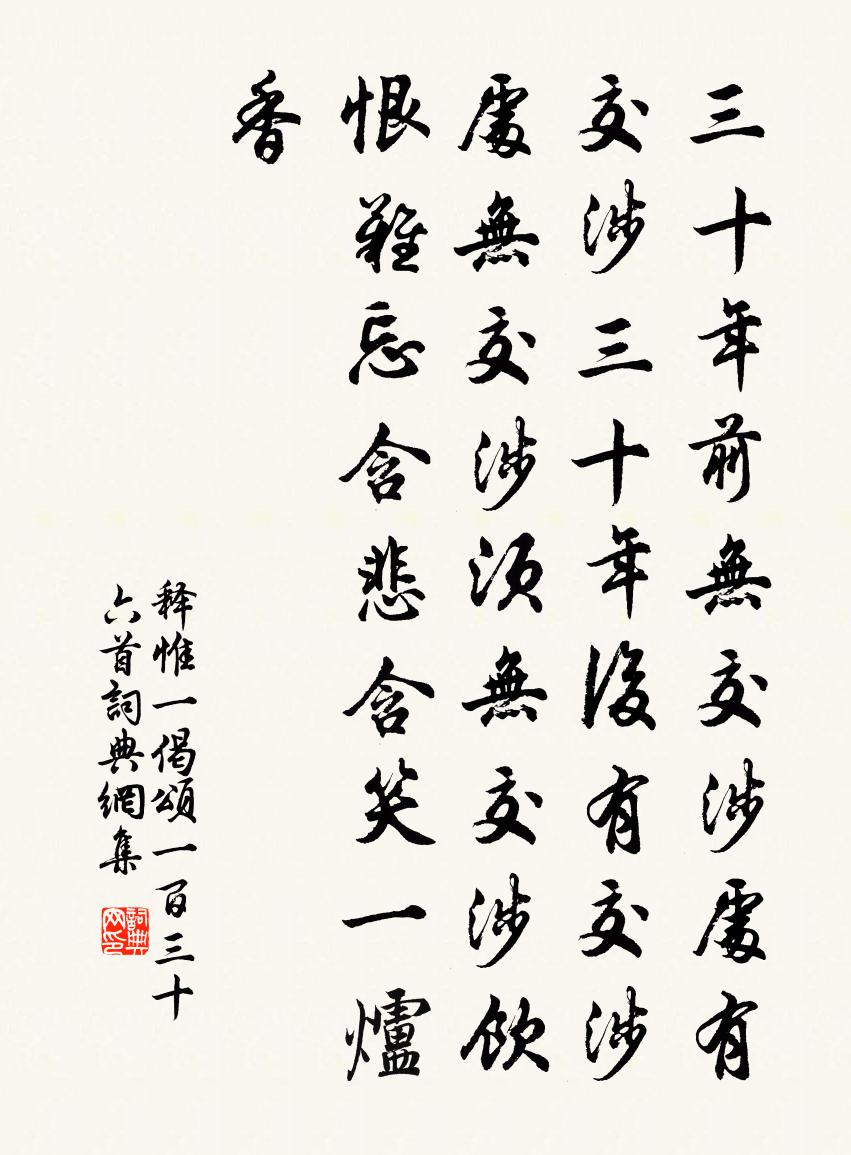 三十年前無交涉處有
交涉三十年後有交涉
處無交涉須無交涉飲
恨難忘含悲含笑一爐
香
释惟一偈頌一百三十
六首詞典網集
詞典网印